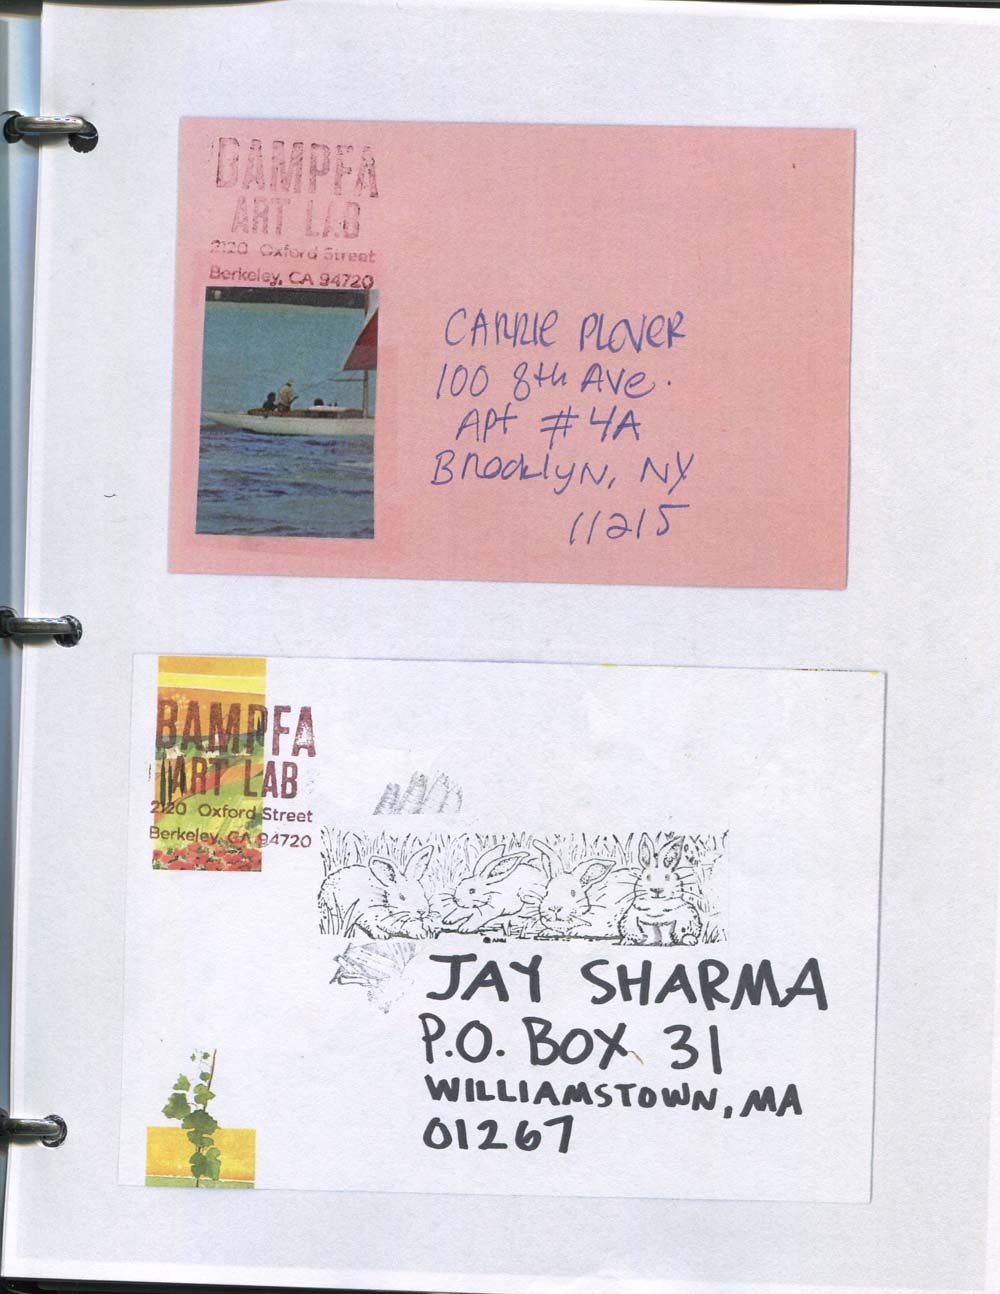 BAMPFA
ART LAB
2120 Oxford Street
Berkeley, CA 94720
CARRIE PLOVER
100 8th AVE.
APt #4A
BROOKLYN, NY
11215
BAMPFA
ART LAB
2120 Oxford Street
Berkeley, CA 94720
JAY SHARMA
P.O. BOX 31
WILLIAMSTOWN, MA
01267